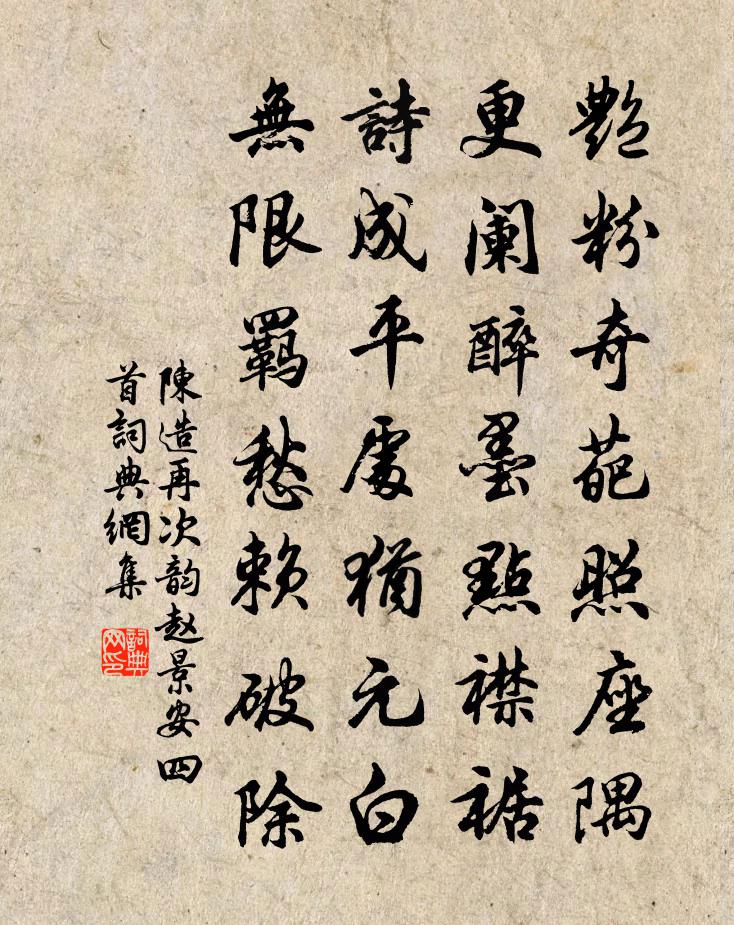 艷粉奇葩照座隅
更阑醉墨點襟裾
詩成平處猶元白
無限羈愁赖破除
陳造再次韵赵景安四
首詞典網集
詞典网印